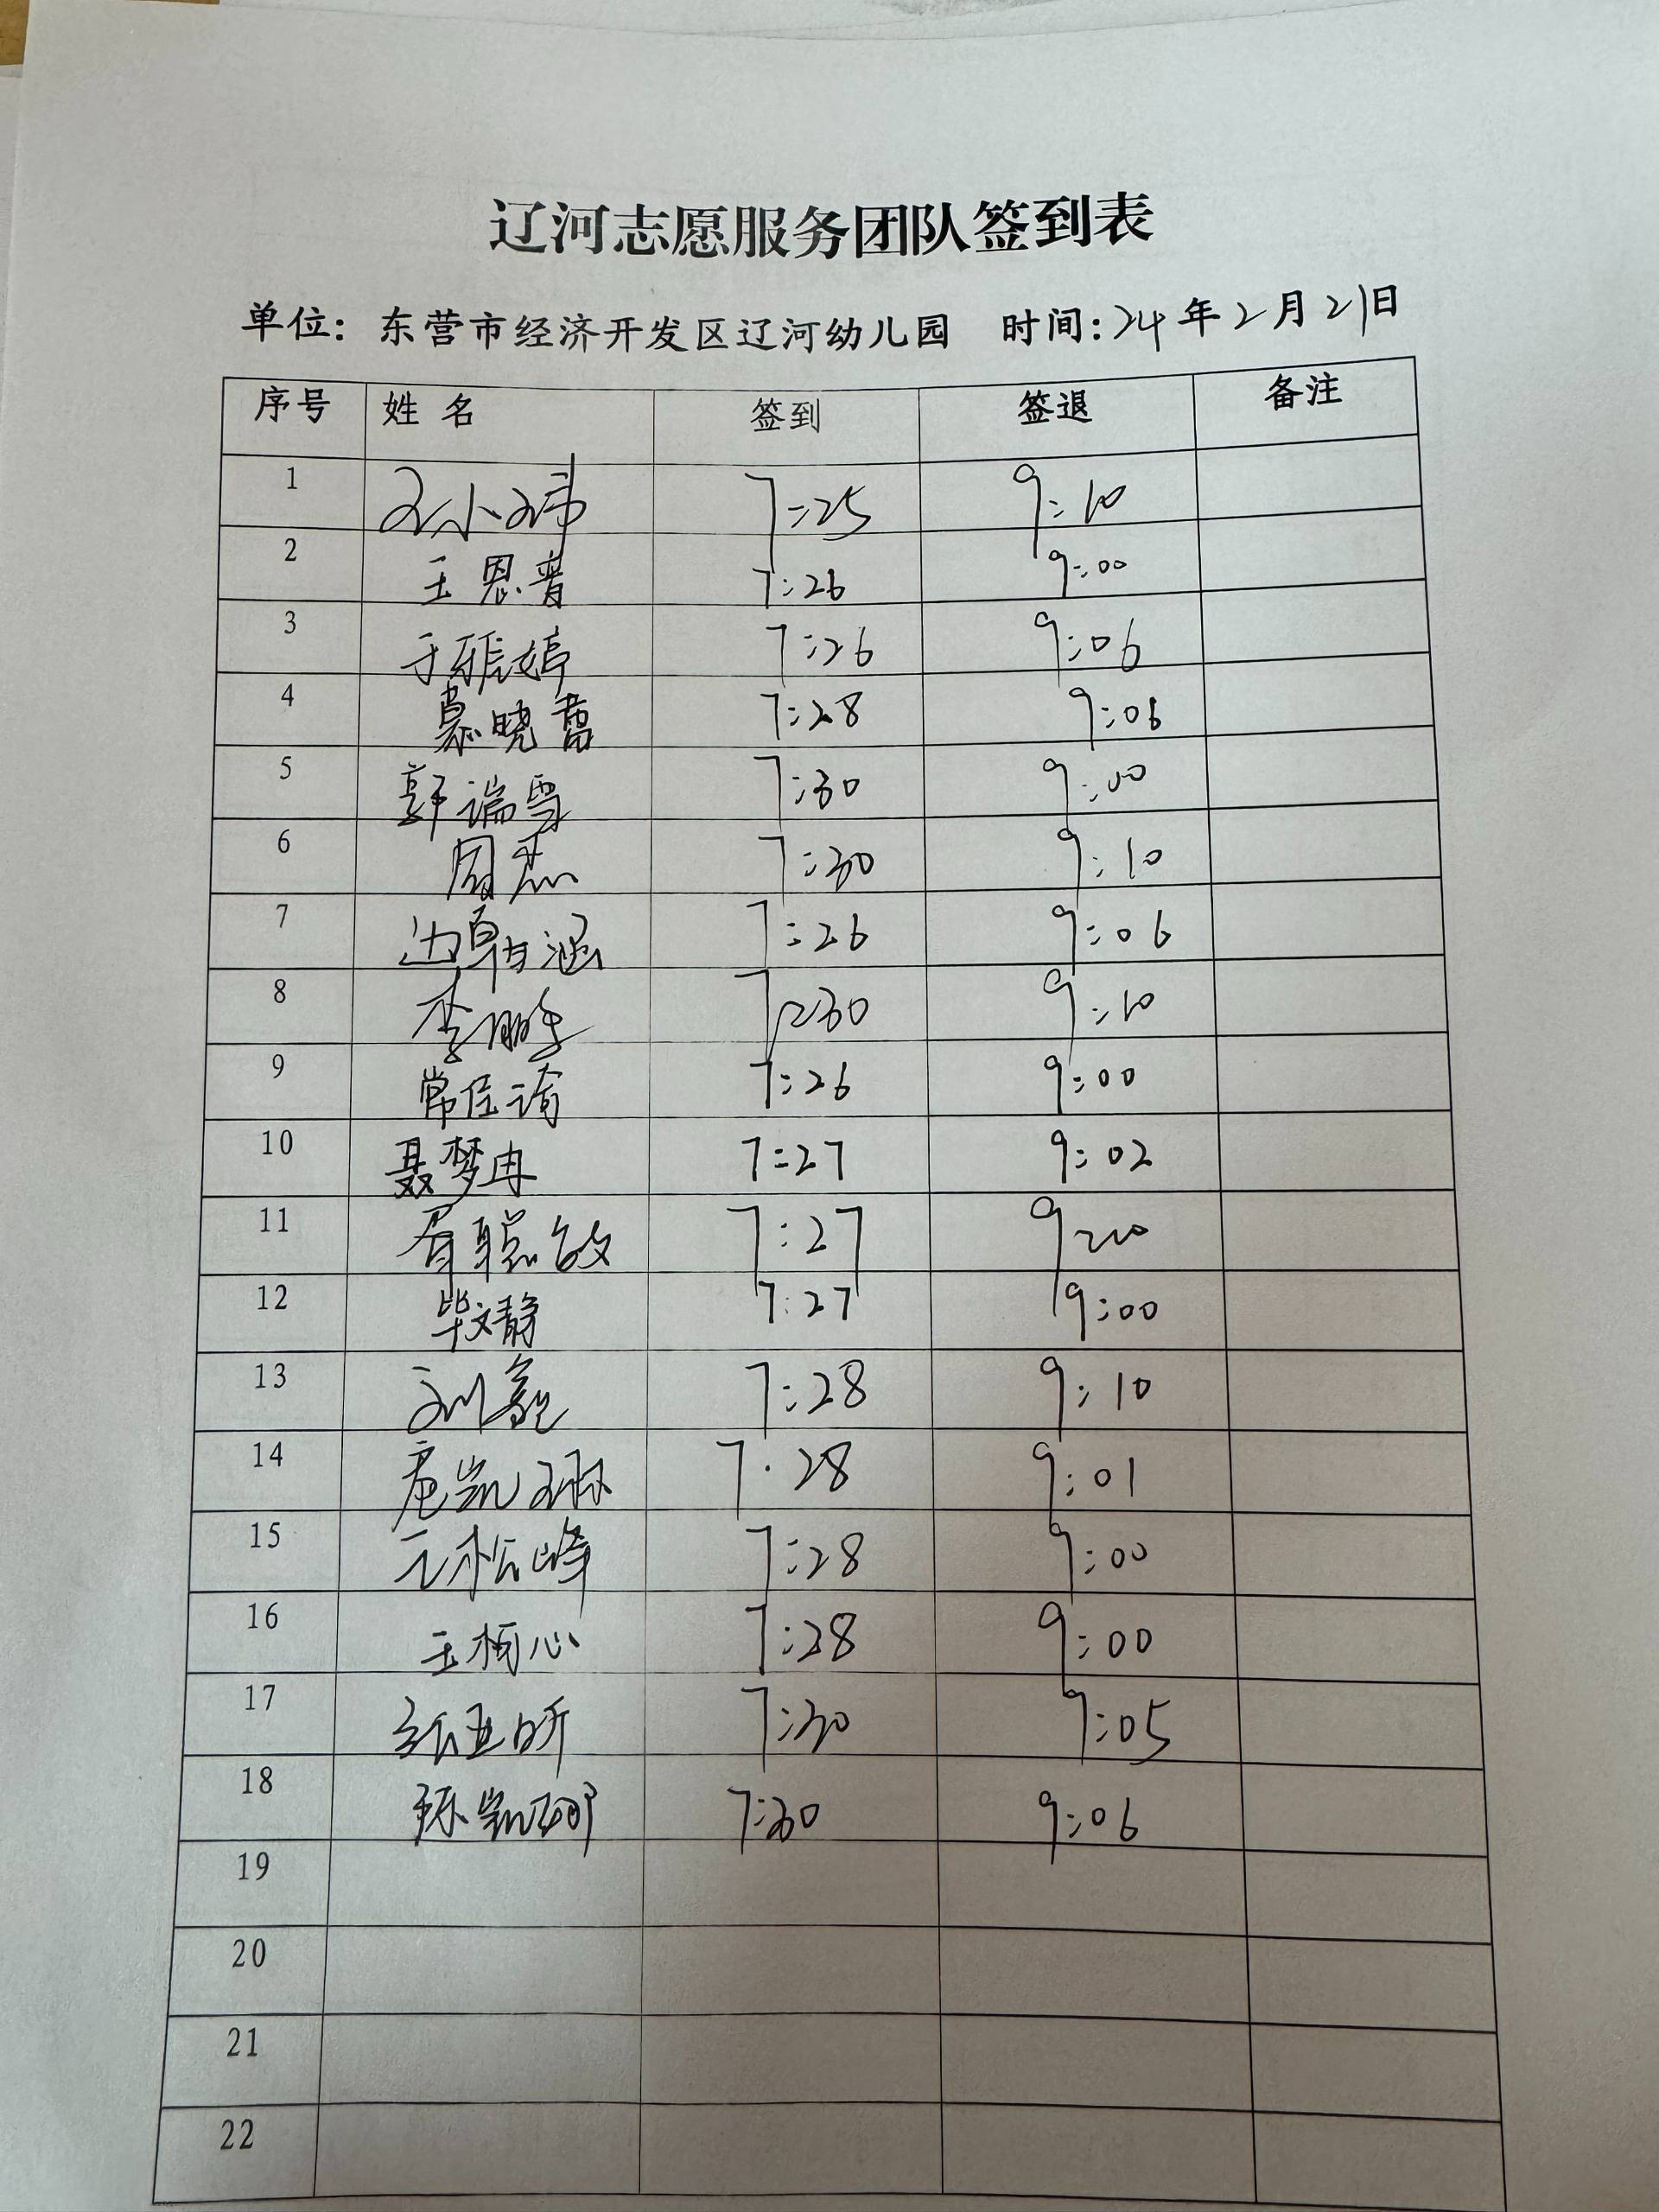 辽河志愿服务团队签到表
单位：东营市经济开发区辽河幼儿园 时间：24年2月21日
序号 姓名 签到 签退 备注
1 孙小玮 7:25 9:10
2 王恩普 7:26 9:00
3 于雅婷 7:26 9:06
4 慕晓蕾 7:28 9:06
5 郭瑞雪 7:30 9:00
6 周燕 7:30 9:10
7 边卓涵 7:26 9:06
8 李鹏 7:30 9:10
9 常佳琦 7:26 9:00
10 聂梦冉 7:27 9:02
11 胥聪敏 7:27 9:10
12 毕文静 7:27 9:00
13 刘 7:28 9:10
14 凯琳 7:28 9:01
15 松峰 7:28 9:00
16 王柯心 7:28 9:00
17 张亚昕 7:30 9:05
18 凯 7:30 9:06
19
20
21
22